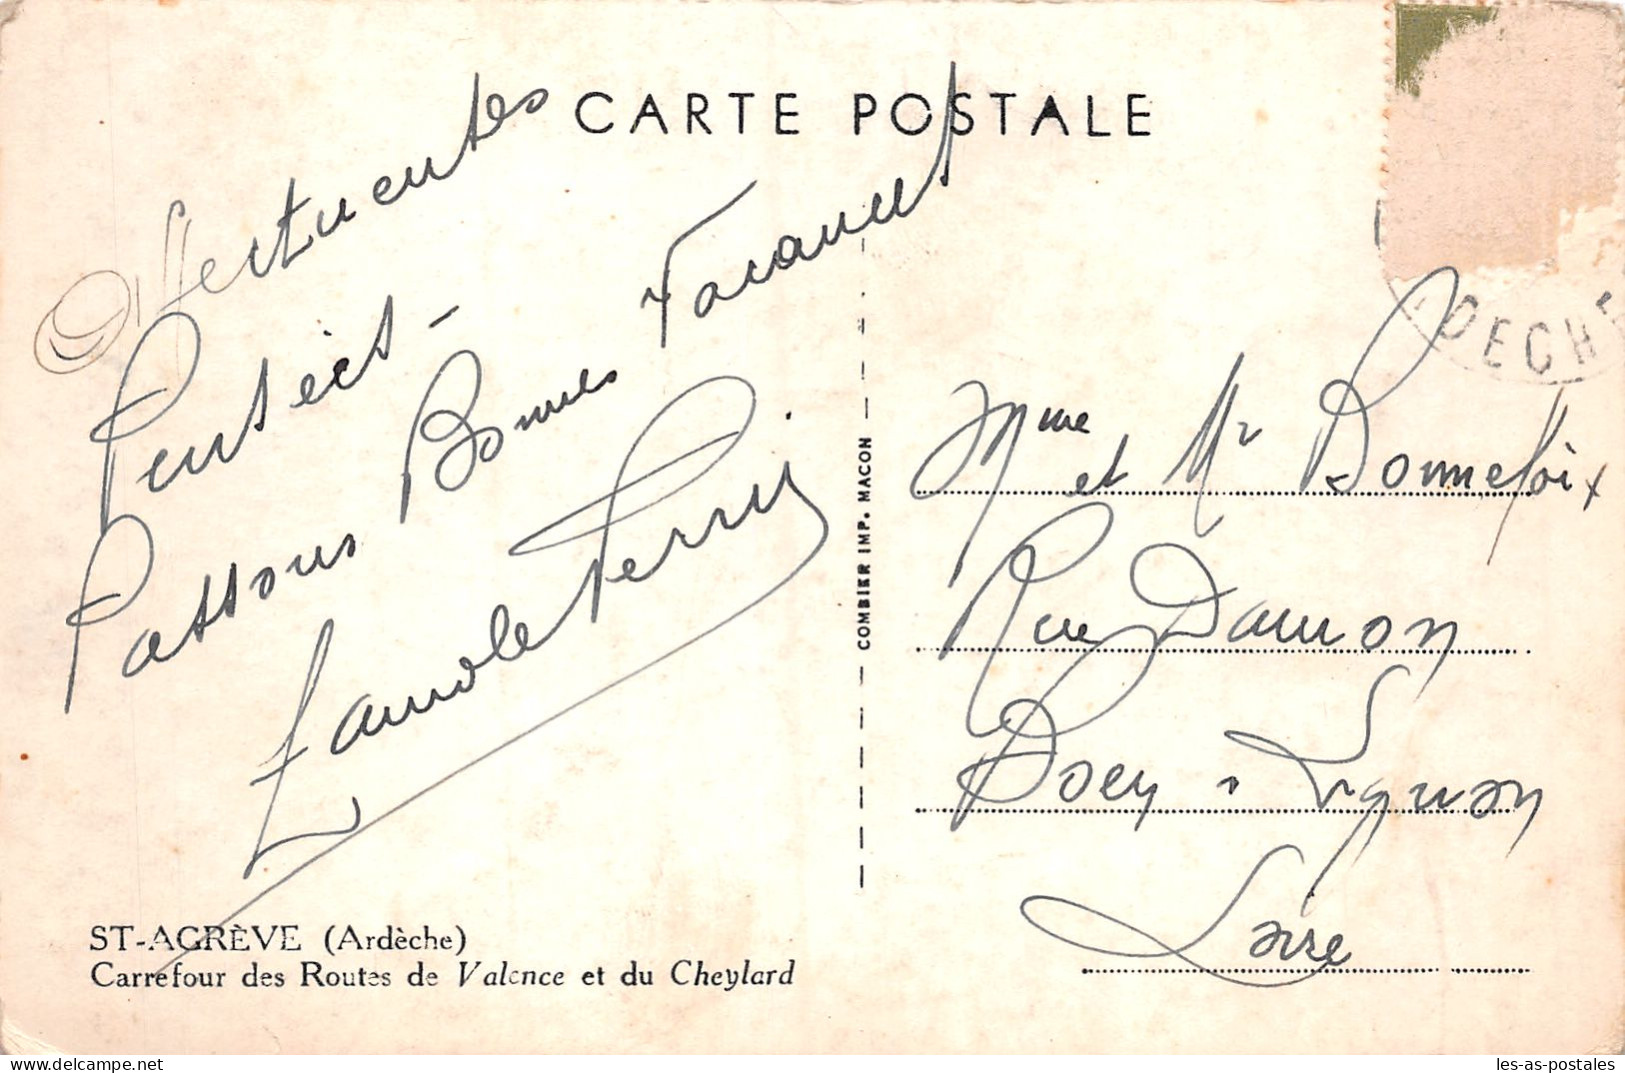 CARTE POSTALE
Affectueuses
Pensées -
Passons Bonnes Vacances
Famille Perrin
COMBIER IMP. MACON
DECHE
Mme et Mr Bonnefoix
Rue Damon
Boen s Lignon
Loire
ST-AGRÈVE (Ardèche)
Carrefour des Routes de Valence et du Cheylard
les-as-postales